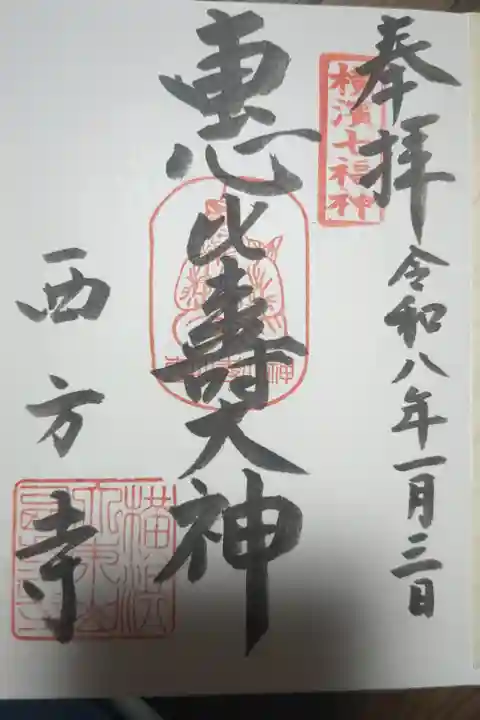 奉拝
令和八年一月三日
横濱七福神
惠比壽大神
西方寺